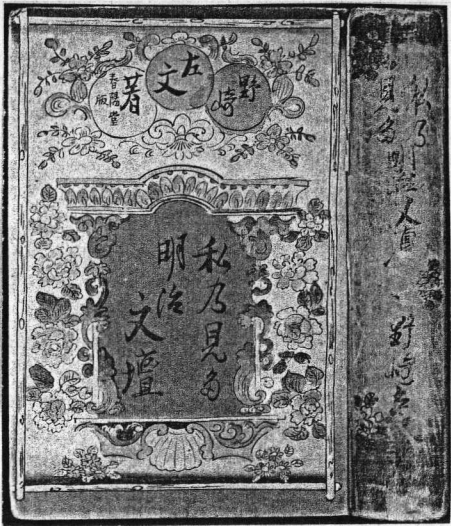 野崎
左文
著
春陽堂
版
私乃見多
明治
文壇
私乃
見多明治文壇
野崎